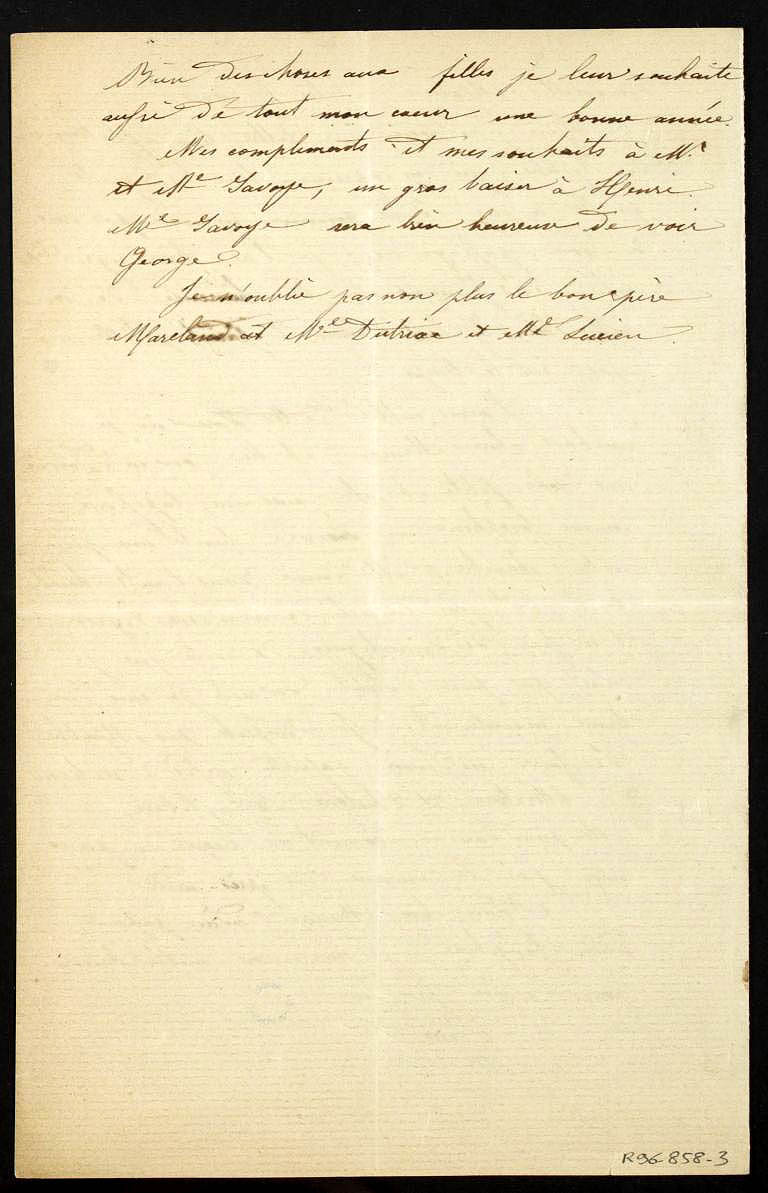 Bien des choses aux filles je leur souhaite
aussi de tout mon coeur une bonne année.
Mes compliments et mes souhaits à Mr
et Me Savoye, un gros baiser à Henri.
Me Savoye sera bien heureuse de voir
George.
Je n'oublie pas non plus le bon père
et Mlle et Me Lucien.
R96-858-3